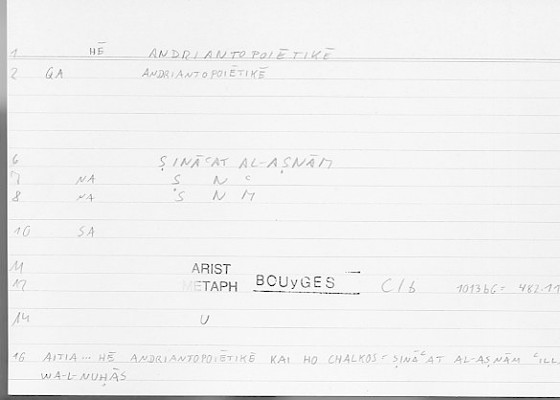 1 HĒ ANDRIANTOPOIĒTIKĒ
2 GA ANDRIANTOPOIĒTIKĒ
6 ṢINĀʿAT AL-AṢNĀM
7 NA Ṣ N ʿ
8 NA Ṣ N M
10 SA
11 ARIST
12 METAPH BOUyGES C/b 1013b6 = 482.11
14 U
16 AITIA ... HĒ ANDRIANTOPOIĒTIKĒ KAI HO CHALKOS = ṢINĀʿAT AL-AṢNĀM ʿILL
WA-L-NUḤĀS